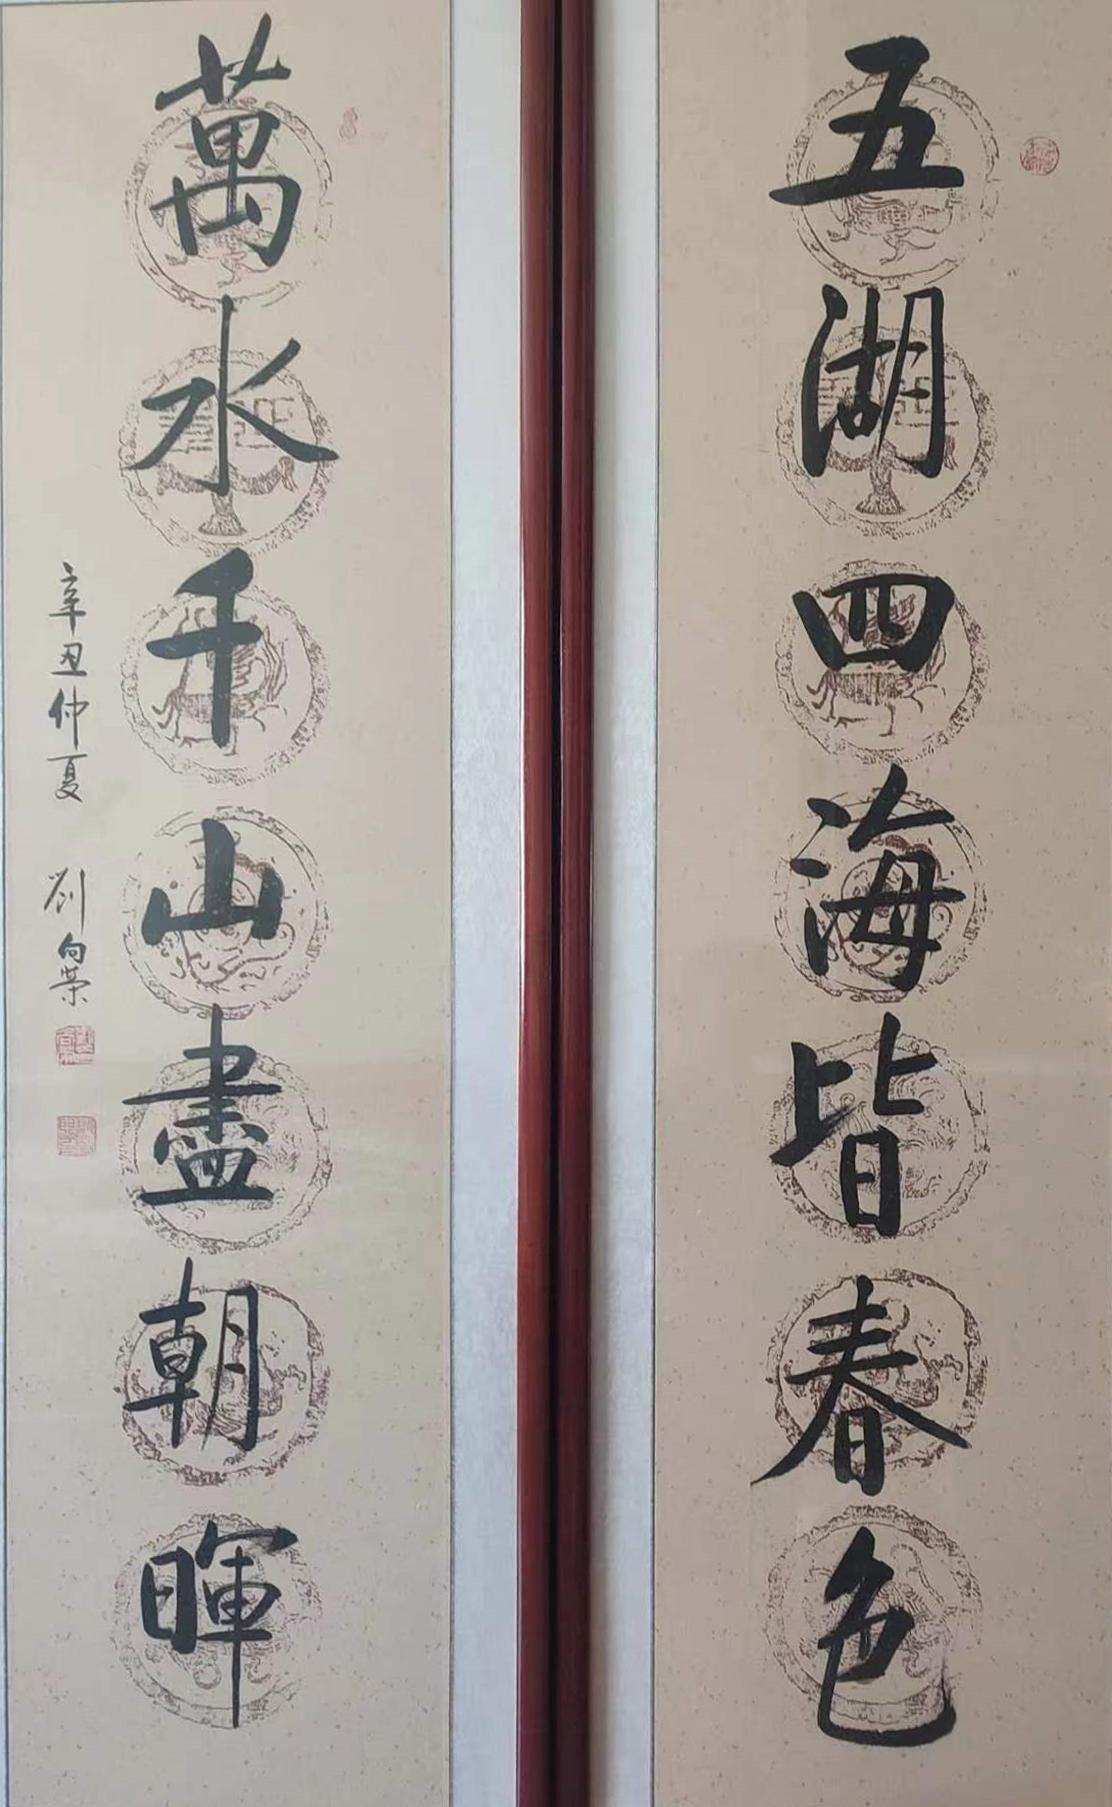 五湖四海皆春色
萬水千山盡朝暉
辛丑仲夏 劉向榮